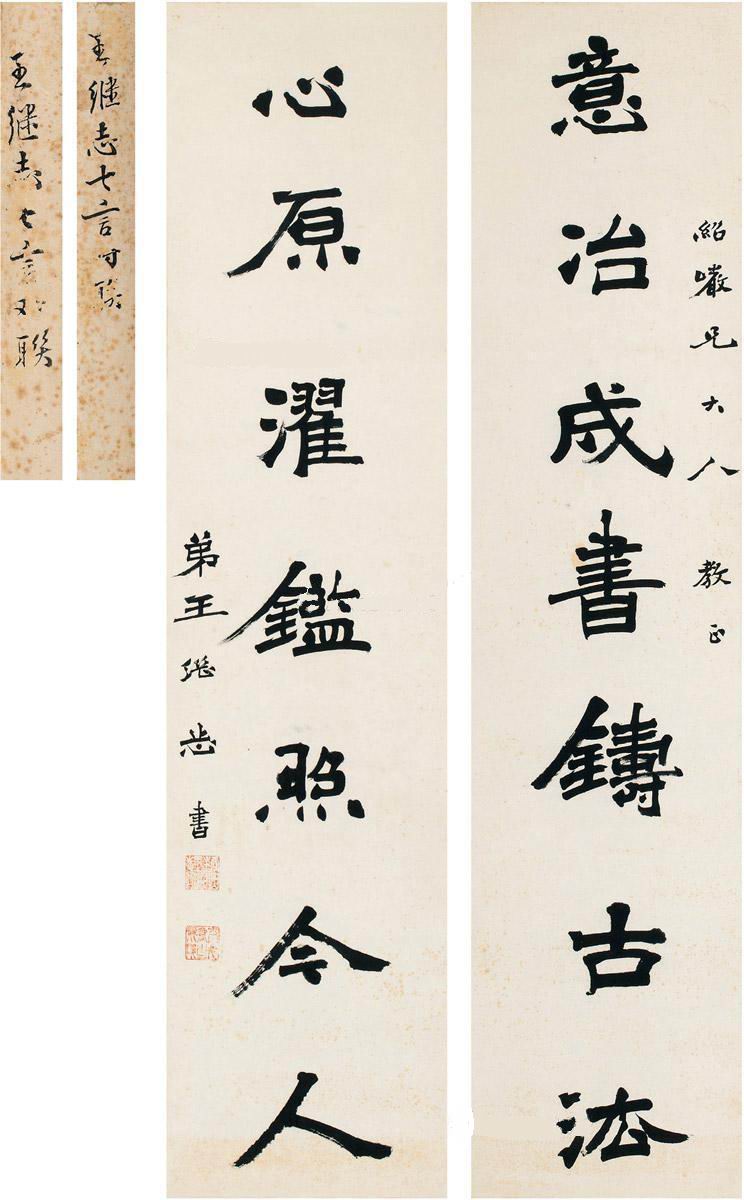 紹巖兄大人 教正
意冶成書鑄古法
心原濯鑑照令人
弟王繼志書
王继志七言对联
王继志七言对联